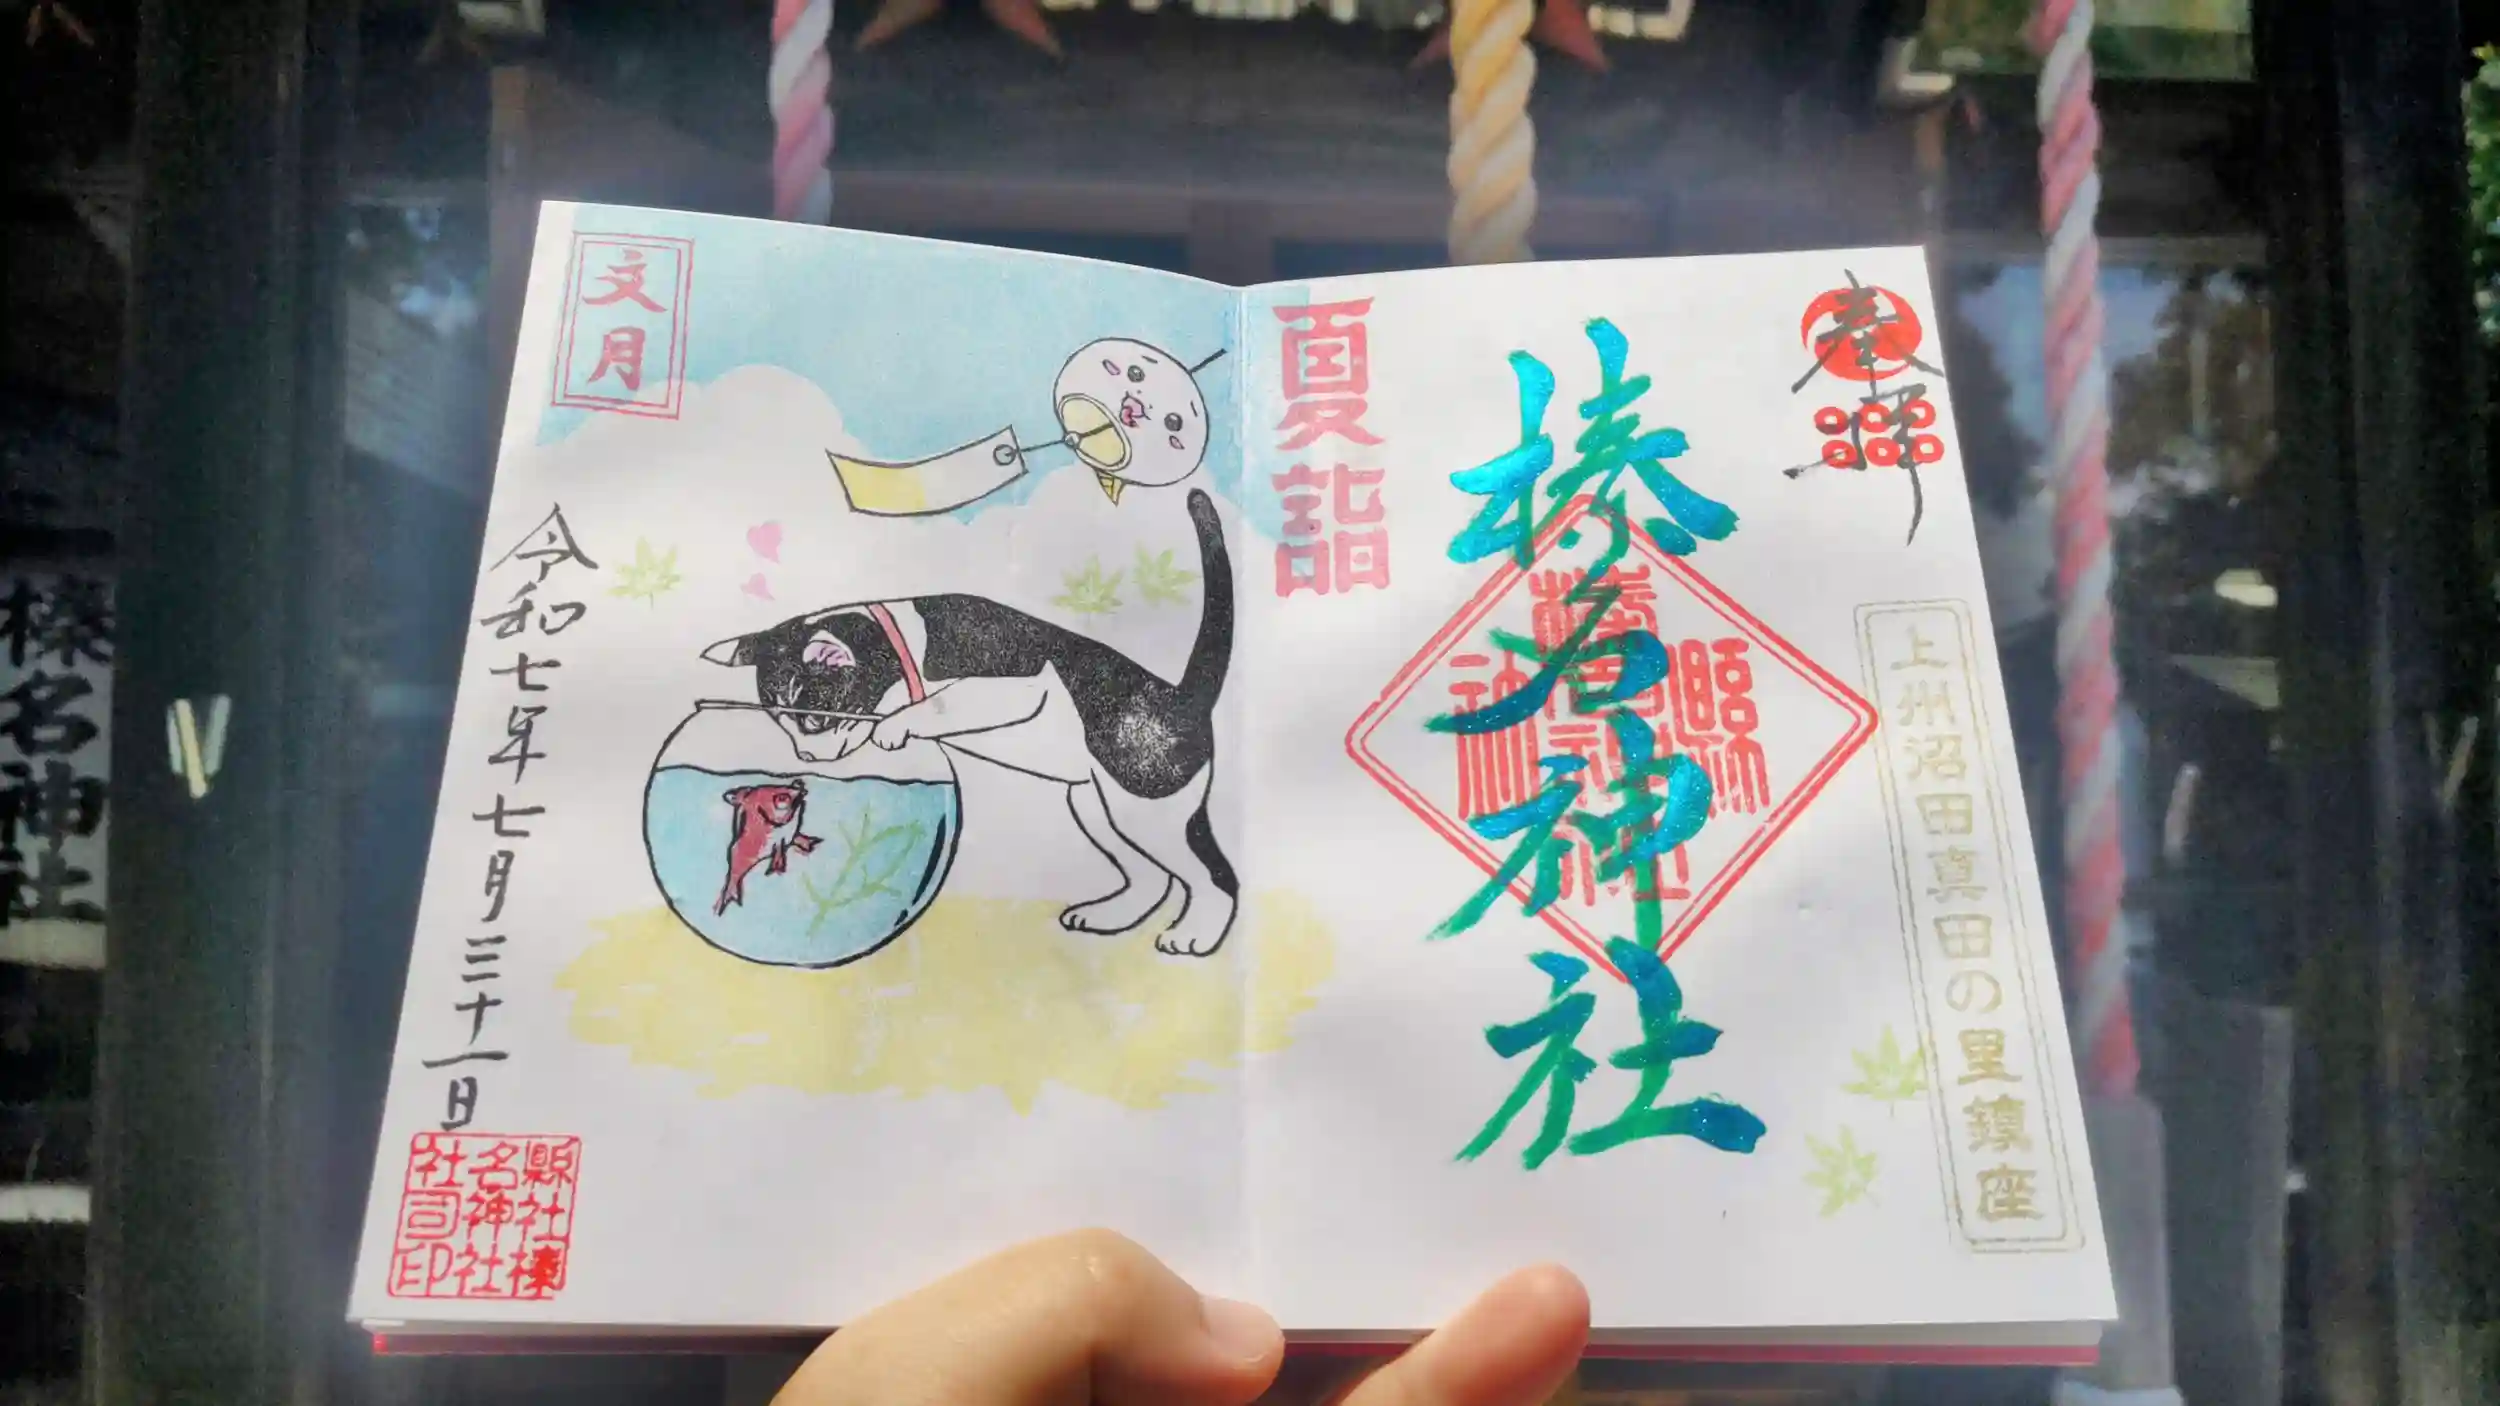 奉拝
上州沼田真田の里鎮座
榛名神社
縣社
榛名神社
夏詣
文月
令和七年七月三十一日
縣社榛
名神社
社司印
榛名神社